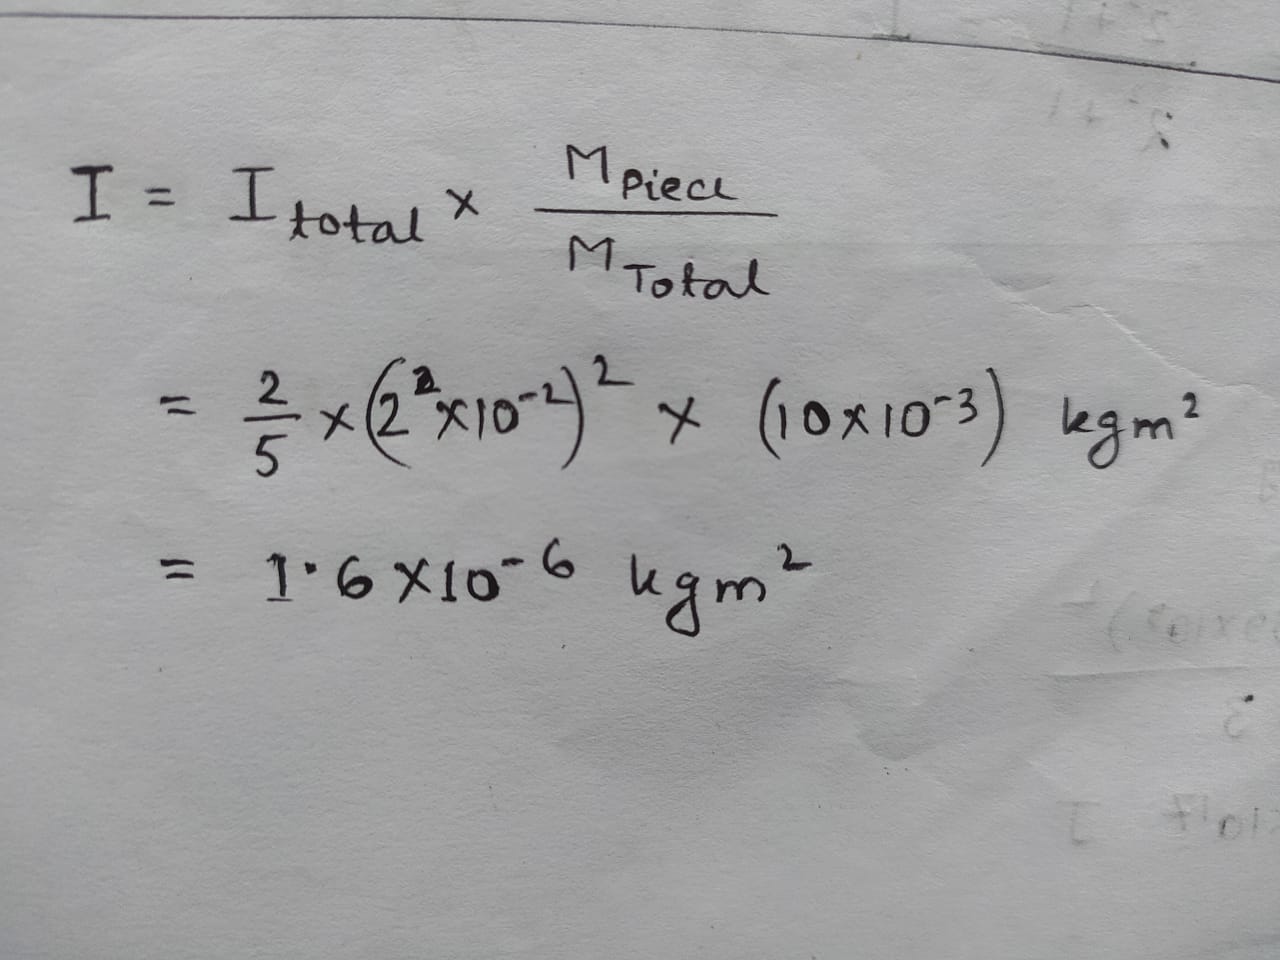 I = I total × M Piece / M Total
= 2/5 × (2² × 10⁻²)² × (10 × 10⁻³) kgm²
= 1.6 × 10⁻⁶ kgm²